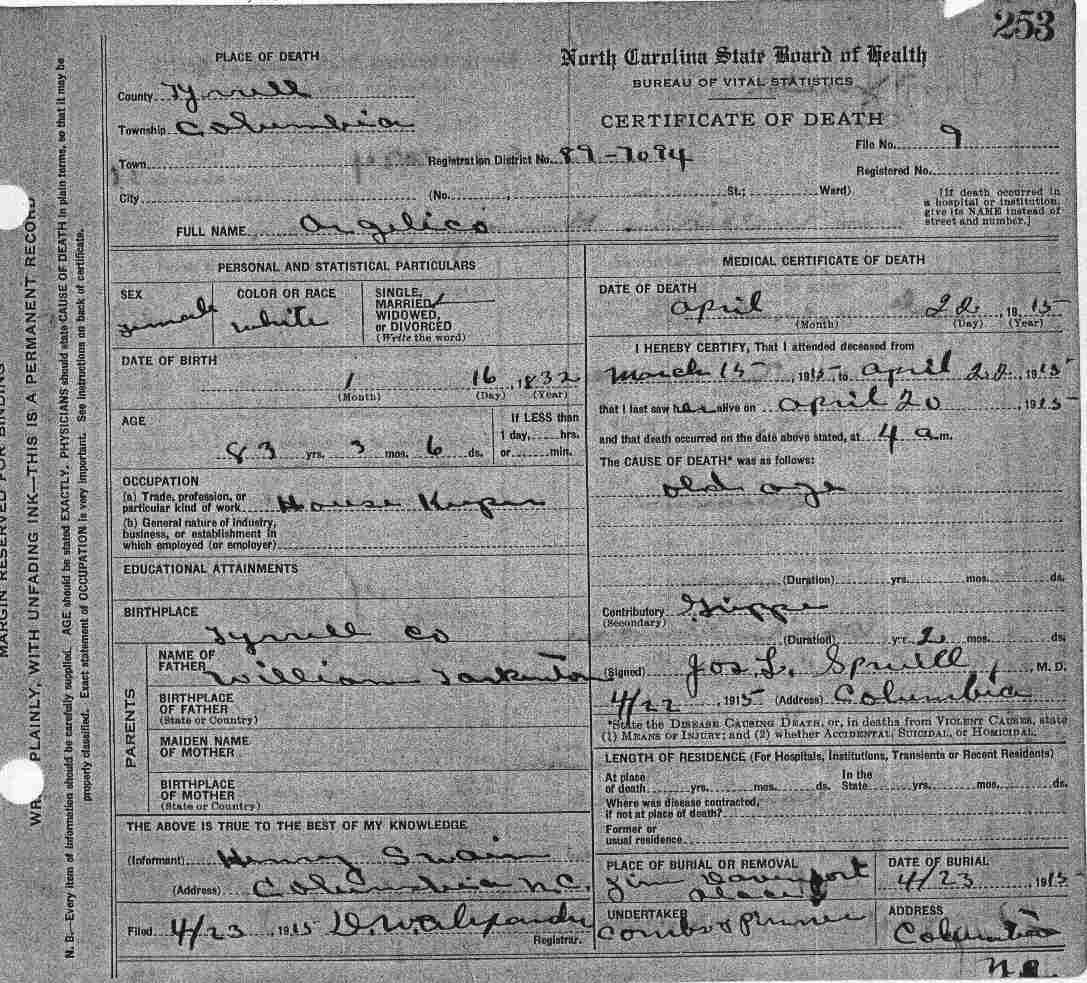 253
PLACE OF DEATH
North Carolina State Board of Health
BUREAU OF VITAL STATISTICS
CERTIFICATE OF DEATH
County Tyrrell
Township Columbia
Town Registration District No. 89-7094
File No. 9
Registered No.
City (No. , St.; Ward)
[If death occurred in
a hospital or institution,
give its NAME instead of
street and number.]
FULL NAME Angelico
PERSONAL AND STATISTICAL PARTICULARS
SEX
Female
COLOR OR RACE
White
SINGLE,
MARRIED,
WIDOWED,
or DIVORCED
(Write the word)
DATE OF BIRTH
1 16, 1832
(Month) (Day) (Year)
AGE
83 yrs. 3 mos. 6 ds.
If LESS than
1 day, hrs.
or min.
OCCUPATION
(a) Trade, profession, or
particular kind of work House Keeper
(b) General nature of industry,
business, or establishment in
which employed (or employer)
EDUCATIONAL ATTAINMENTS
BIRTHPLACE
Tyrrell Co
PARENTS
NAME OF
FATHER William Tarkenton
BIRTHPLACE
OF FATHER
(State or Country)
MAIDEN NAME
OF MOTHER
BIRTHPLACE
OF MOTHER
(State or Country)
THE ABOVE IS TRUE TO THE BEST OF MY KNOWLEDGE
(Informant) Henry Swain
(Address) Columbia N.C.
Filed 4/23, 1915
Registrar.
MEDICAL CERTIFICATE OF DEATH
DATE OF DEATH
April 22, 1915
(Month) (Day) (Year)
I HEREBY CERTIFY, That I attended deceased from
March 15, 1915, to April 22, 1915
that I last saw her alive on April 20, 1915
and that death occurred on the date above stated, at 4 a m.
The CAUSE OF DEATH* was as follows:
old age
(Duration) yrs. mos. ds.
Contributory Grippe
(Secondary)
(Duration) yrs. 2 mos. ds.
(Signed) Jos. L. Spruill, M. D.
4/22, 1915 (Address) Columbia
*State the DISEASE CAUSING DEATH, or, in deaths from VIOLENT CAUSES, state
(1) MEANS OF INJURY; and (2) whether ACCIDENTAL, SUICIDAL, OR HOMICIDAL.
LENGTH OF RESIDENCE (For Hospitals, Institutions, Transients or Recent Residents)
At place In the
of death yrs. mos. ds. State yrs. mos. ds.
Where was disease contracted,
if not at place of death?
Former or
usual residence
PLACE OF BURIAL OR REMOVAL
Jim Davenport
Place
DATE OF BURIAL
4/23 1915
UNDERTAKER
Combs
ADDRESS
Columbia
N.C.
MARGIN RESERVED FOR BINDING
PLAINLY, WITH UNFADING INK—THIS IS A PERMANENT RECORD
N. B.—Every item of information should be carefully supplied. AGE should be stated EXACTLY. PHYSICIANS should state CAUSE OF DEATH in plain terms, so that it may be
properly classified. Exact statement of OCCUPATION is very important. See instructions on back of certificate.